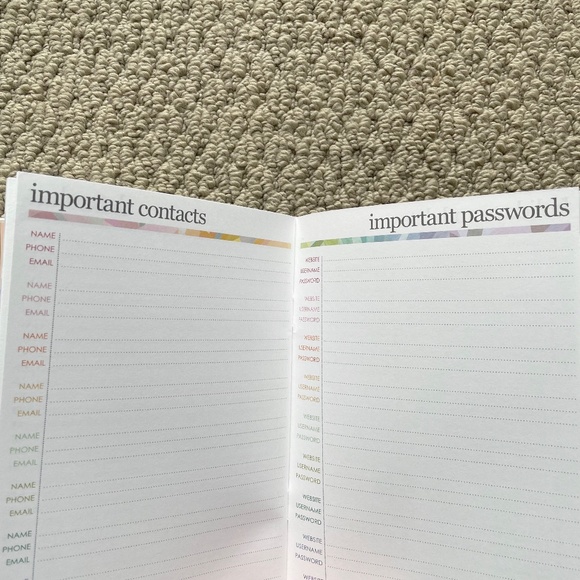 important contacts
NAME
PHONE
EMAIL
NAME
PHONE
EMAIL
NAME
PHONE
EMAIL
NAME
PHONE
EMAIL
NAME
PHONE
EMAIL
NAME
PHONE
EMAIL
NAME
PHONE
EMAIL
important passwords
WEBSITE
USERNAME
PASSWORD
WEBSITE
USERNAME
PASSWORD
WEBSITE
USERNAME
PASSWORD
WEBSITE
USERNAME
PASSWORD
WEBSITE
USERNAME
PASSWORD
WEBSITE
USERNAME
PASSWORD
WEBSITE
USERNAME
PASSWORD
WEBSITE
USERNAME
PASSWORD
WEBSITE